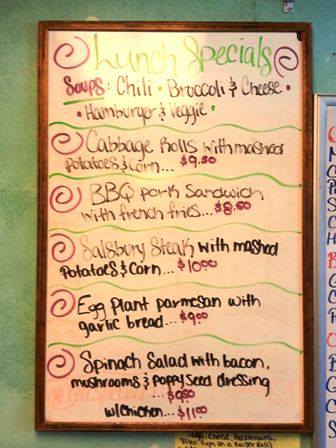 Lunch Specials
Soups: Chili • Broccoli & Cheese •
• Hamburger & Veggie •
Cabbage Rolls with mashed
potatoes & Corn... $9.50
BBQ pork Sandwich
with french fries... $8.50
Salsbury Steak with mashed
Potatoes & Corn... $10.00
Egg plant parmesan with
garlic bread... $9.00
Spinach Salad with bacon,
mushrooms & poppy seed dressing
... $9.50
w/Chicken... $11.00